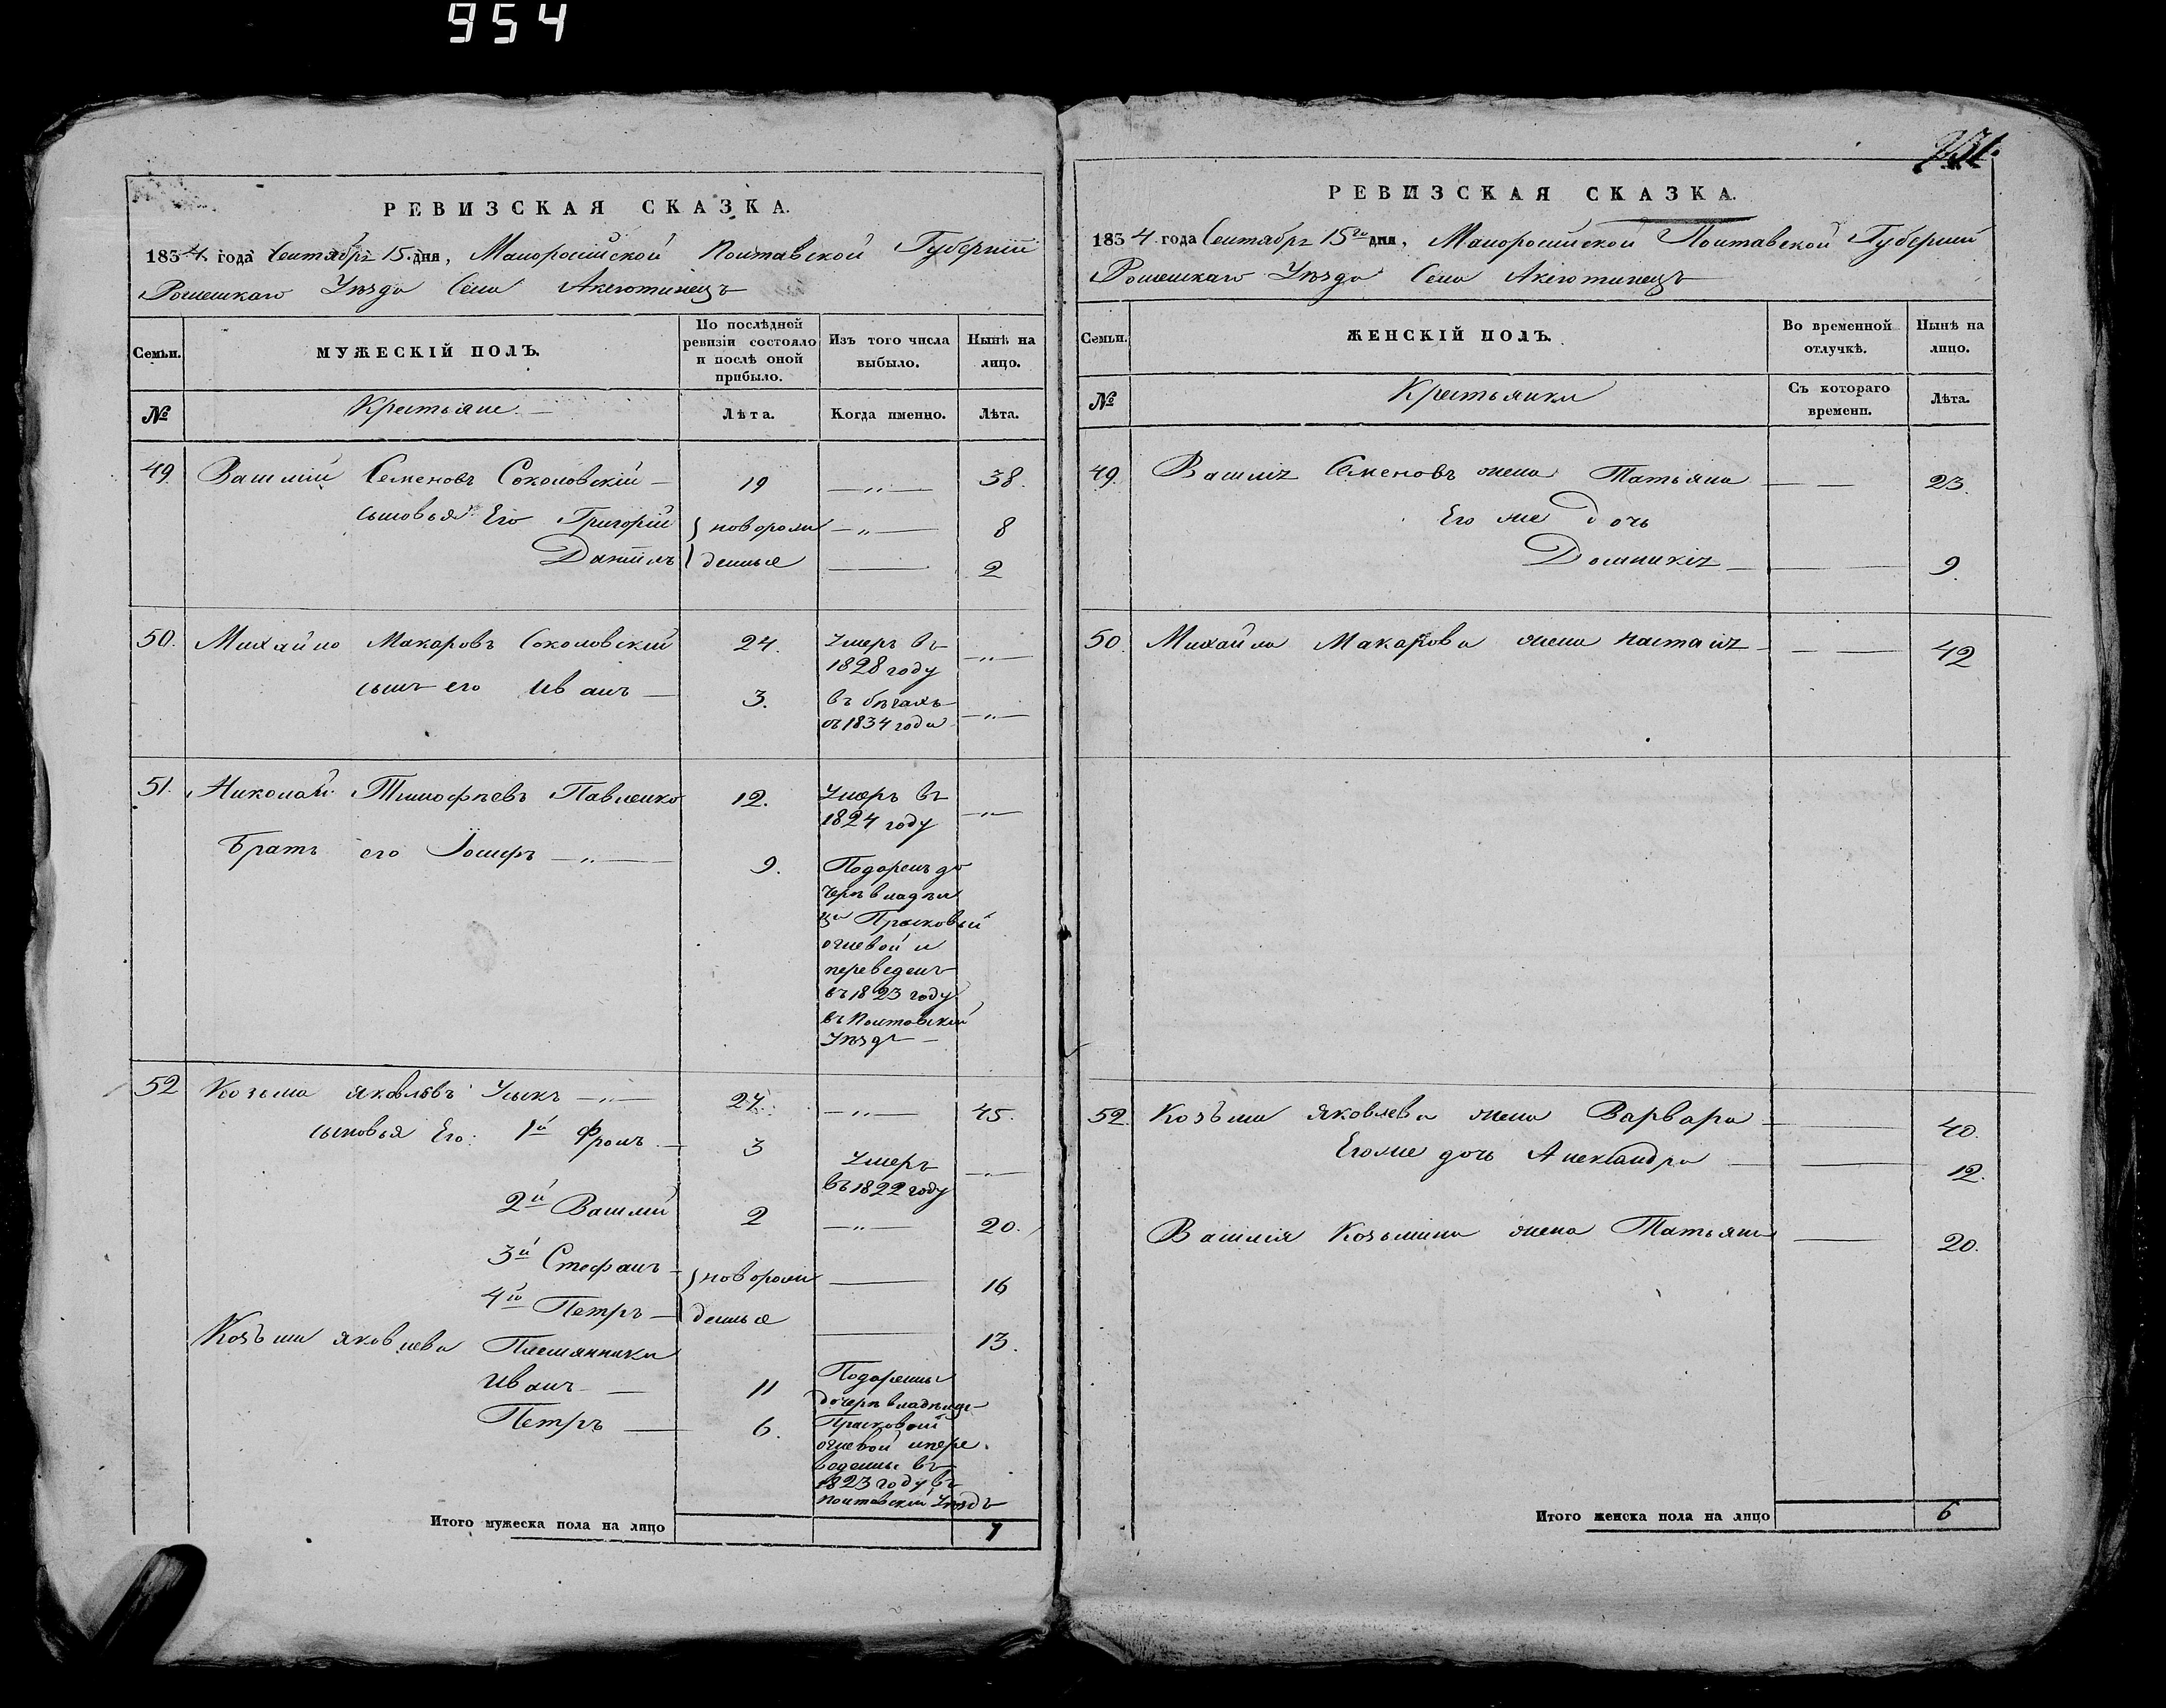 954
РЕВИЗСКАЯ СКАЗКА.
1834. года Сентября 15. дня, Малоросийской Полтавской Губерніи
Роменскаго Уѣзда Села Аксютинецъ
Семьи.
МУЖЕСКІЙ ПОЛЪ.
По послѣдней ревизіи состояло и послѣ оной прибыло.
Изъ того числа выбыло.
Нынѣ на лицо.
№
Крестьяне.
Лѣта.
Когда именно.
Лѣта.
49. Василій Семеновъ Соколовскій 19 —"— 38.
сыновья Его Григорій } новорож —"— 8
Даніилъ } денные — 2
50. Михайло Макаровъ Соколовскій 24. Умеръ въ 1828 году —"—
сынъ его Иванъ — 3. въ бѣгахъ съ 1834 года —"—
51. Николай Тимофѣевъ Павленко 12. Умеръ въ 1824 году —"—
Братъ его Іосифъ —"— 9. Подаренъ до
черѣ владѣл
цы Прасковьи
огневой и
переведенъ
въ 1823 году
въ Полтавскій
Уѣздъ —
52 Козьма Яковлѣвъ Усыкъ —"— 27. —"— 45.
сыновья Его: 1й Фролъ — 3 Умеръ въ 1822 году —"—
2й Василій 2 —"— 20.
3й Стефанъ } новорож — 16
4й Петръ — } денные — 13.
Козьмы Яковлева Племянники
Иванъ — 11 Подарены
дочерѣ владѣлцы
Петръ — 6. Прасковьи
огневой и пере
ведены въ
1823 году въ
Полтавскій Уѣздъ
Итого мужеска пола на лицо 7
РЕВИЗСКАЯ СКАЗКА.
1834 года Сентября 15го дня, Малоросийской Полтавской Губерніи
Роменскаго Уѣзда Села Аксютинецъ
Семьи.
ЖЕНСКІЙ ПОЛЪ.
Во временной отлучкѣ.
Нынѣ на лицо.
№
Крестьянки
Съ котораго времени.
Лѣта.
49. Василія Семенова жена Татьяна — — 23.
Его же дочь
Домникія — — 9.
50. Михайла Макарова жена Наталія — — 42
52. Козьмы Яковлева жена Варвара — 40.
Его же дочь Александра — 12.
Василія Козьмина жена Татьяна — 20.
Итого женска пола на лицо 6